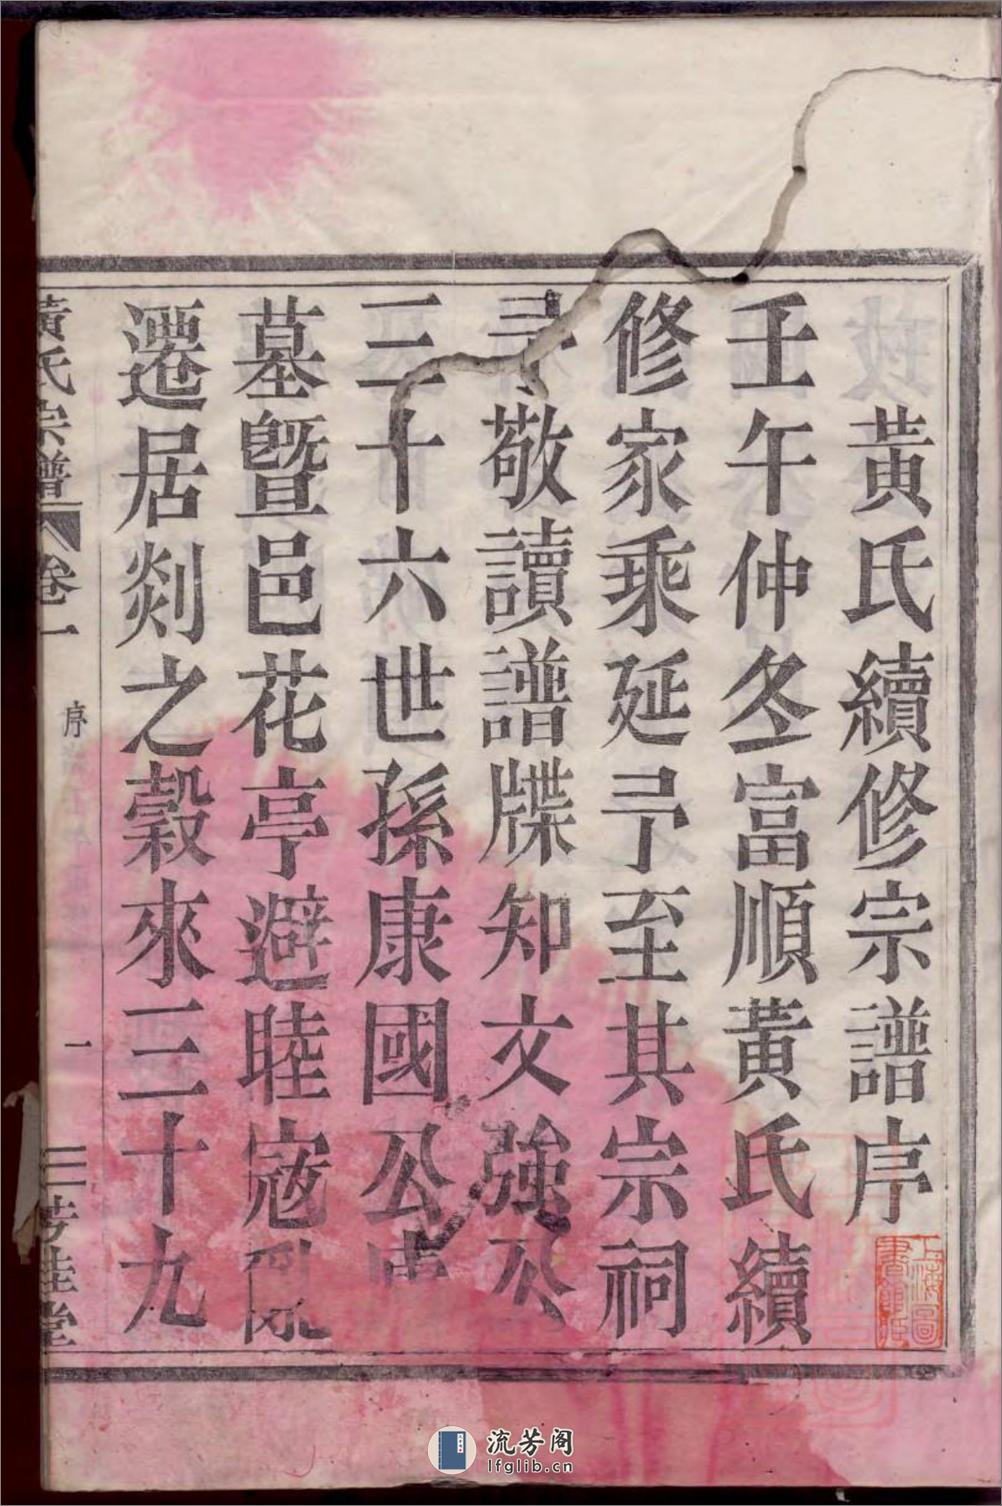 黃氏續修宗譜序
壬午仲冬富順黃氏續
修家乘延予至其宗祠
予敬讀譜牒知文強公
三十六世孫康國公
墓暨邑花亭避睦寇亂
遷居剡之穀來三十九
黃氏宗譜 卷一
序
一
芳桂堂
上海圖書館藏
流芳阁
lfglib.cn